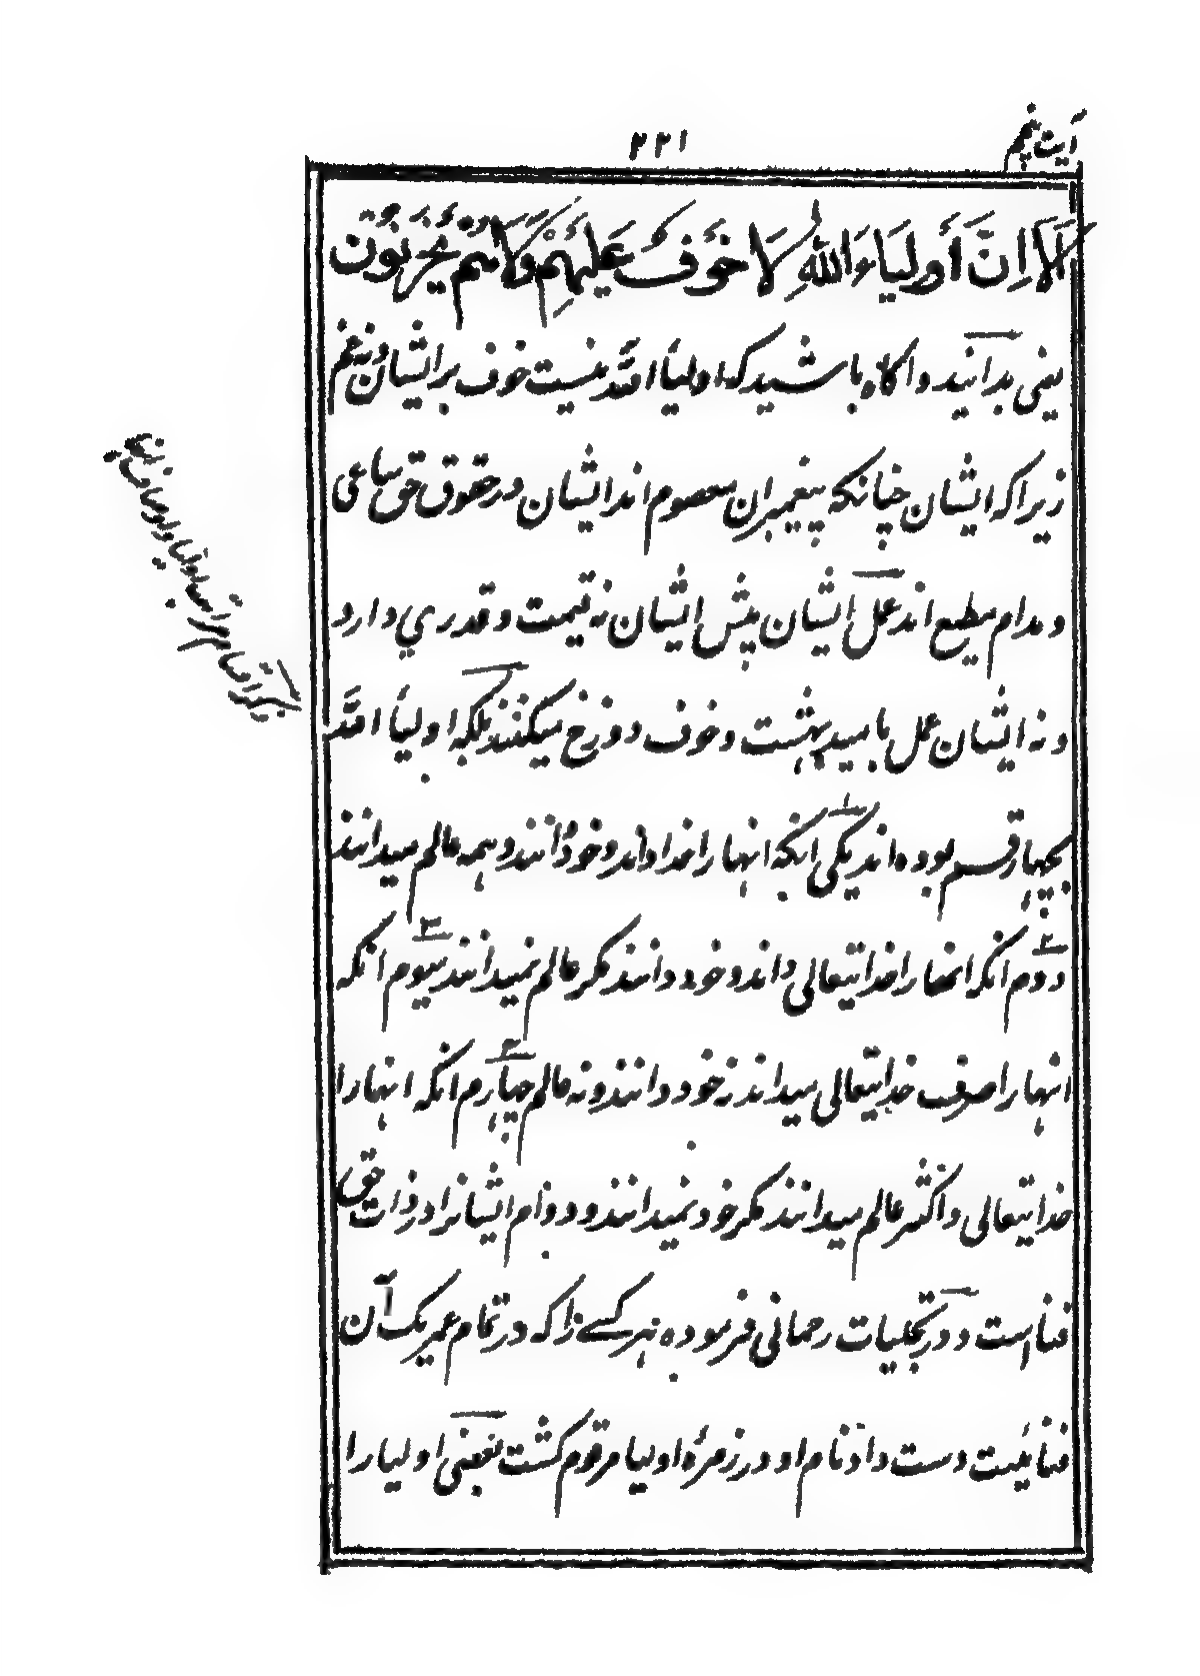 آیت پنجم
۲۲۱
اَلَا اِنَّ أَولِيَاءَ اللهِ لَا خَوفٌ عَلَيهِم وَلَا هُم يَحزَنُون
یعنی بدانید و آگاه باشید که اولیأ الله نیست خوف بر ایشان و نه غم
زیرا که ایشان چنانکه پیغمبران معصوم اند ایشان در حقوق حق ساعی
و مدام مطیع اند عمل ایشان پیش ایشان نه قیمت و قدری دارد
و نه ایشان عمل بامید بهشت و خوف دوزخ میکنند بلکه اولیأ الله
بچهار قسم بوده اند یکی آنکه انها را خدا داند و خود دانند و همه عالم میدانند
دوم آنکه انها را خدایتعالی داند و خود دانند مگر عالم نمیدانند سیوم انکه
انها را صرف خدایتعالی میداند نه خود دانند و نه عالم چهارم انکه انها را
خدایتعالی و اکثر عالم میدانند مگر خود نمیدانند و دوام ایشانرا در ذات حق
فنا است و در تجلیات رحمانی فرموده هر کسے را که در تمام عمر یک آن
فنائیت دست داد نام او در زمرۀ اولیا مرقوم گشت بعضی اولیا را
ذکر اقسام مراتب اولیا و اوصاف ایشان